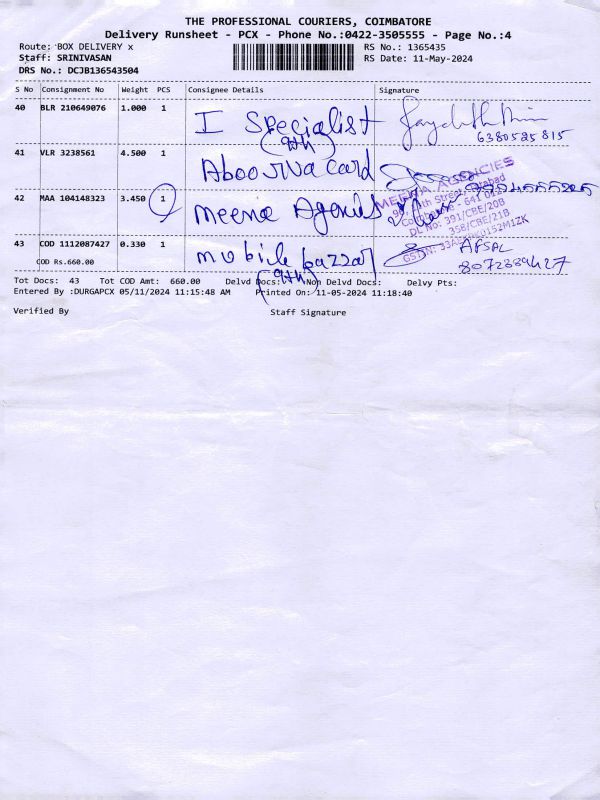 THE PROFESSIONAL COURIERS, COIMBATORE
Delivery Runsheet - PCX - Phone No.:0422-3505555 - Page No.:4
Route: BOX DELIVERY x
RS No.: 1365435
Staff: SRINIVASAN
RS Date: 11-May-2024
DRS No.: DCJB136543504
S No Consignment No Weight PCS Consignee Details Signature
40 BLR 210649076 1.000 1 I Specialist
(9th)
6380525815
41 VLR 3238561 4.500 1 Aboorva card
42 MAA 104148323 3.450 1 Meena Agencies
MEENA AGENCIES
43 COD 1112087427 0.330 1 mobile bazzar AFSAL
COD Rs.660.00 (9th) 8072339427
Tot Docs: 43 Tot COD Amt: 660.00 Delvd Docs: Non Delvd Docs: Delvy Pts:
Entered By :DURGAPCX 05/11/2024 11:15:48 AM Printed On: 11-05-2024 11:18:40
Verified By Staff Signature